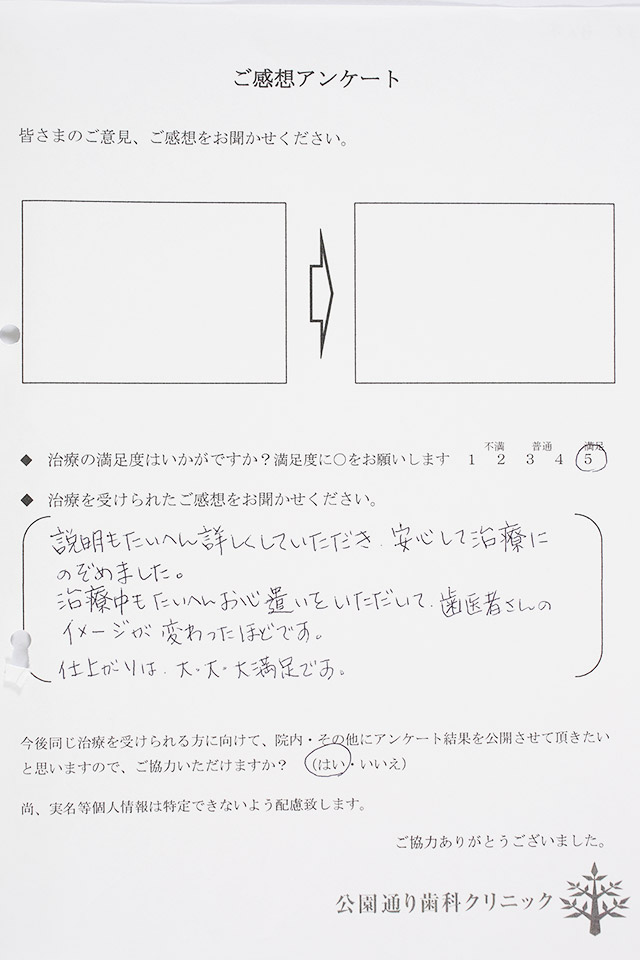 ご感想アンケート
皆さまのご意見、ご感想をお聞かせください。
不満 普通 満足
◆ 治療の満足度はいかがですか？満足度に○をお願いします 1 2 3 4 5
◆ 治療を受けられたご感想をお聞かせください。
説明もたいへん詳しくしていただき、安心して治療に
のぞめました。
治療中もたいへんお心遣いをいただいて、歯医者さんの
イメージが変わったほどです。
仕上がりは、大・大・大満足です。
今後同じ治療を受けられる方に向けて、院内・その他にアンケート結果を公開させて頂きたい
と思いますので、ご協力いただけますか？ （はい・いいえ）
尚、実名等個人情報は特定できないよう配慮致します。
ご協力ありがとうございました。
公園通り歯科クリニック